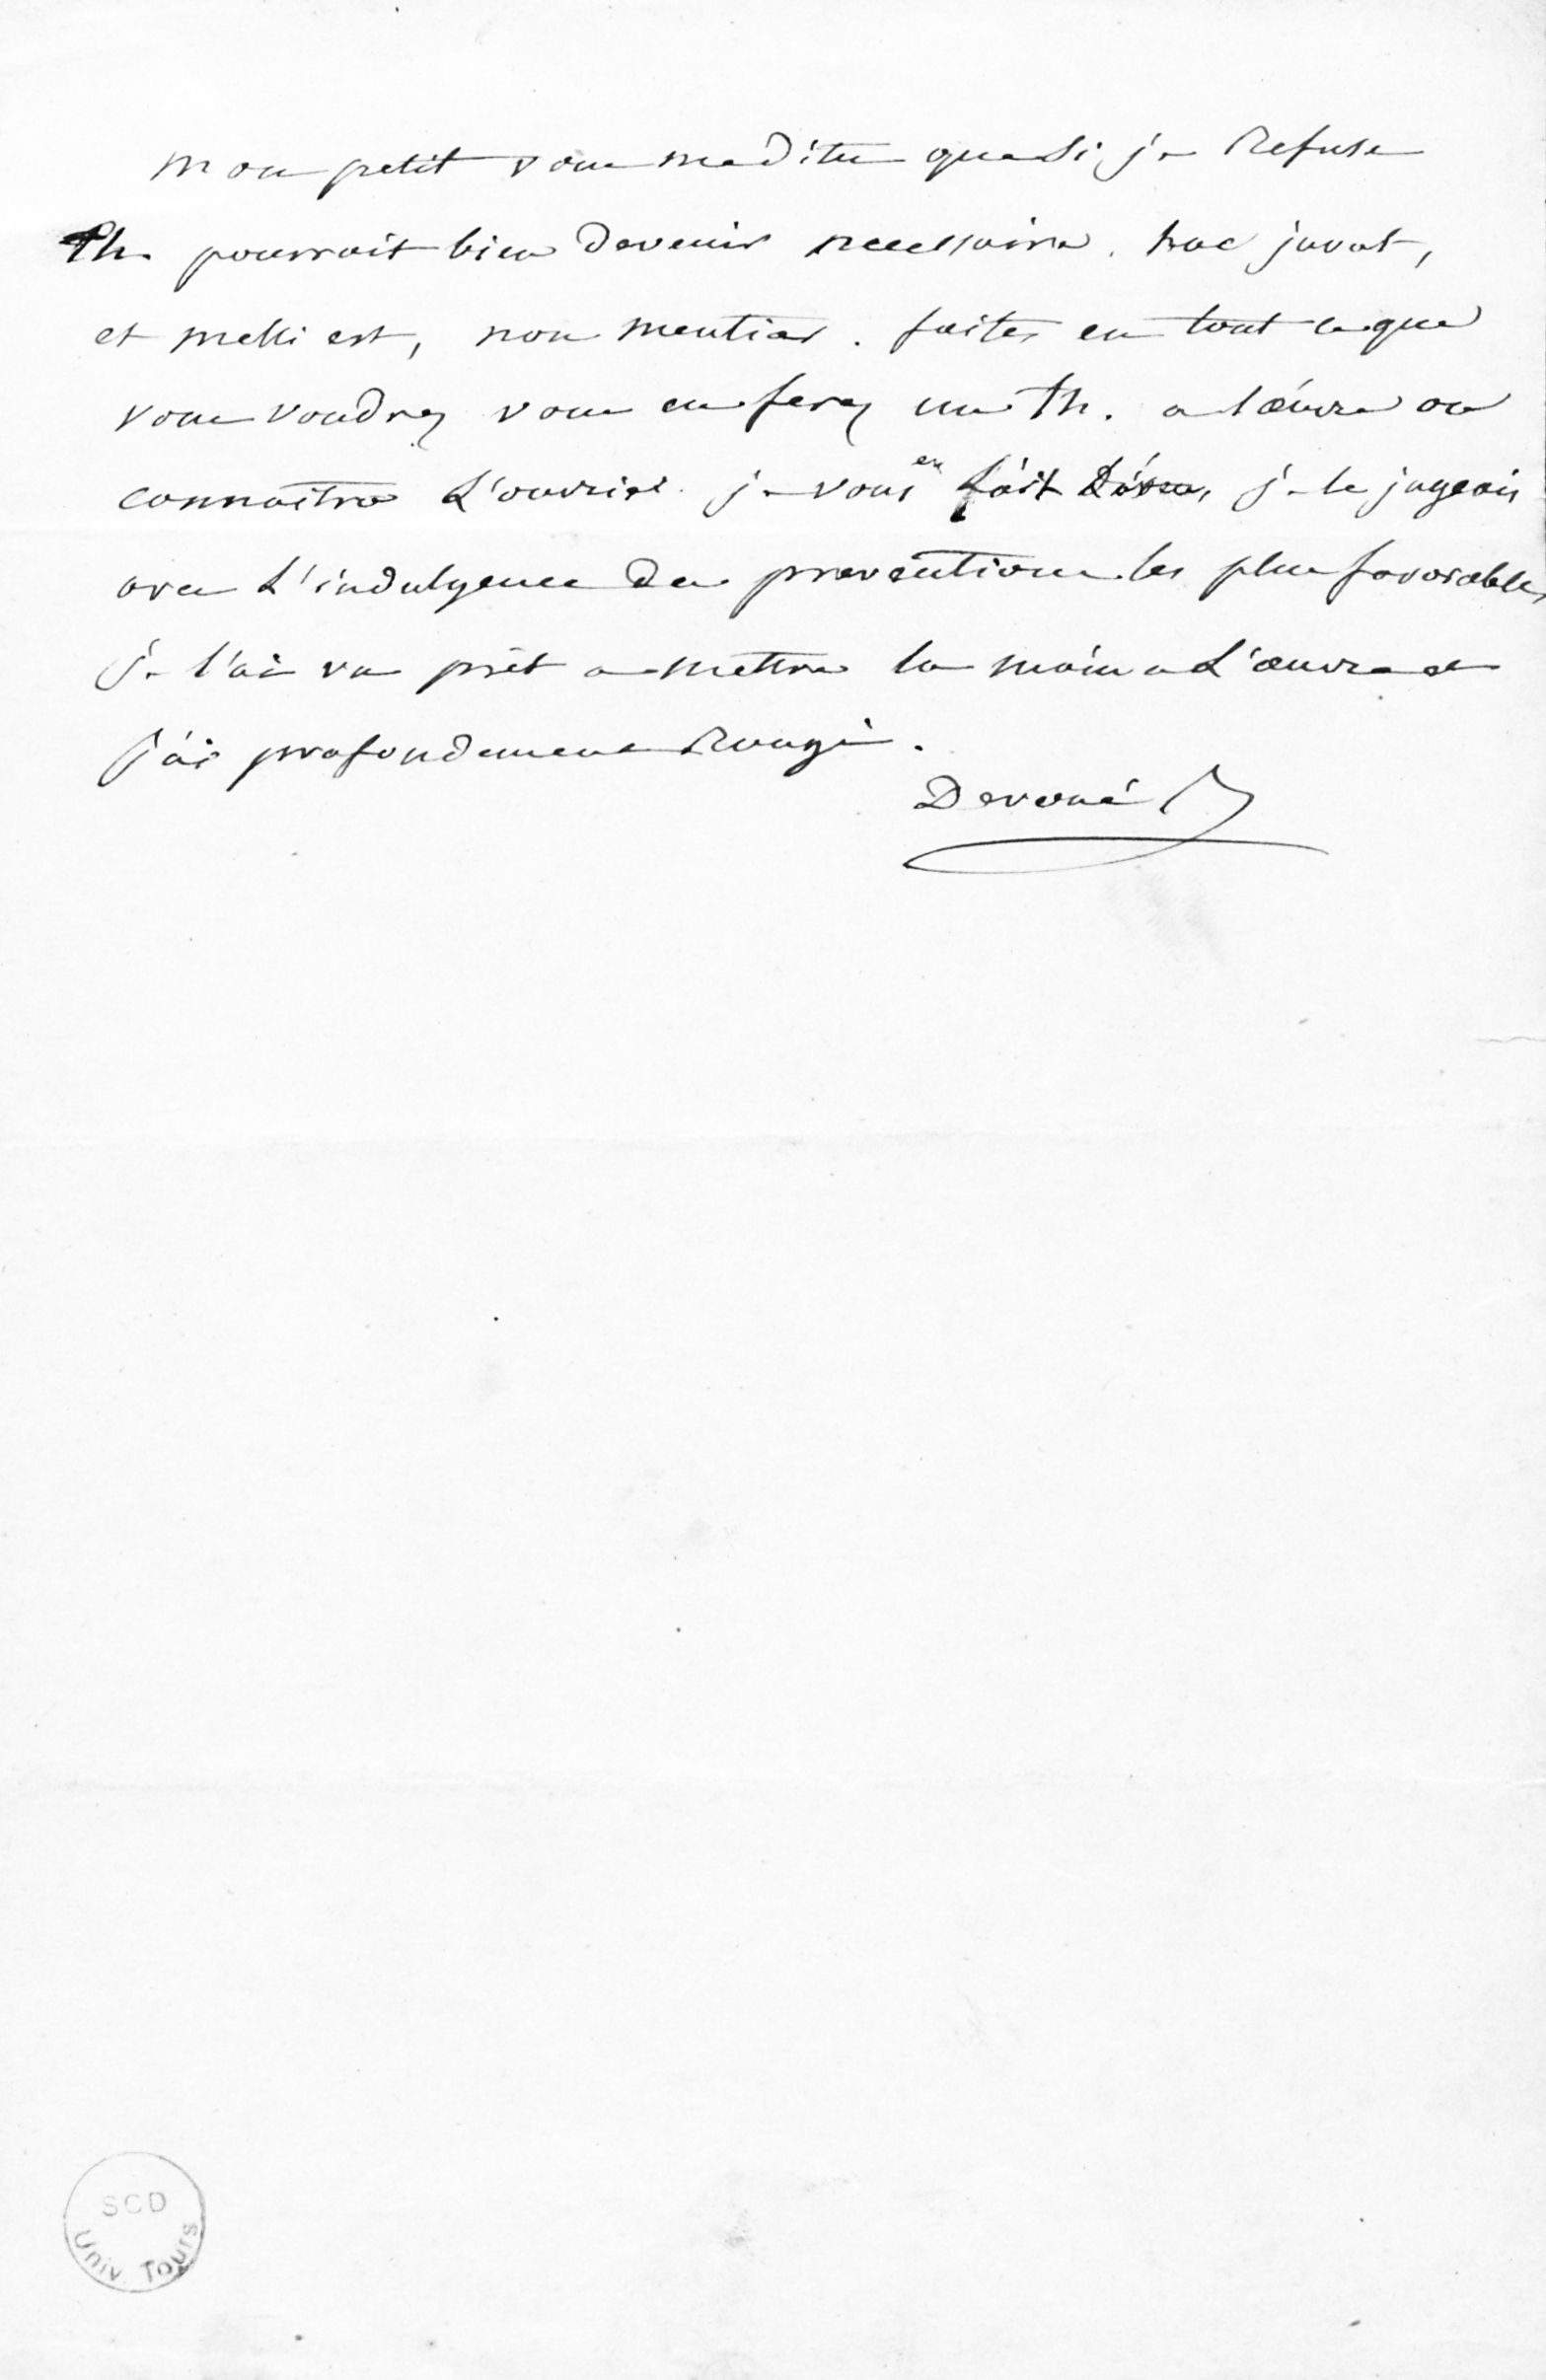 mon petit vous me dites que si je Refuse
Th. pourrait bien Devenir necessaire. hoc juvat,
et melli est, non mentiar. faites en tout ce que
vous voudrez vous en ferez un Th. a l'œuvre on
connaitra L'ouvrier. je vous en fait je le jugeais
avec L'indulgence Des preventions les plus favorables,
je l'ai vu prêt a mettre la main a L'œuvre et
j'ai profondement Rougi.
Devoué
SCD
Univ Tours